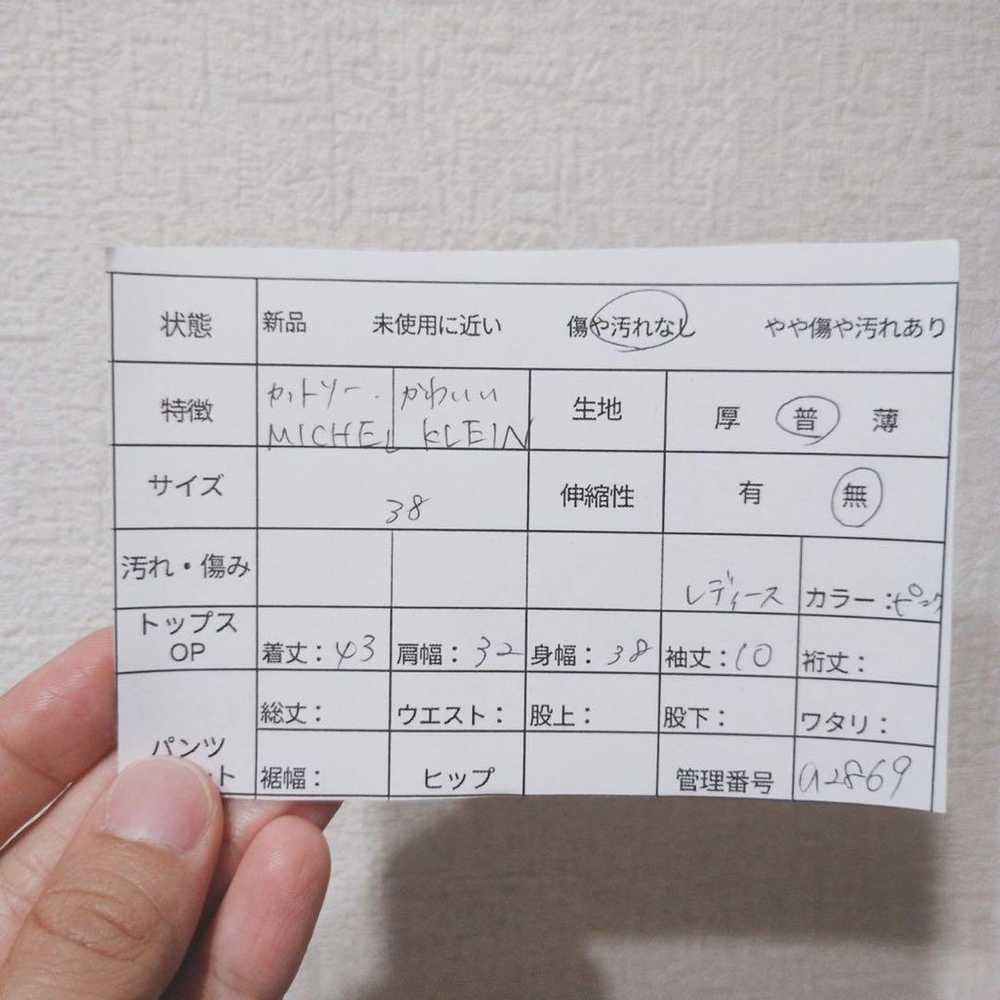 状態 新品 未使用に近い 傷や汚れなし やや傷や汚れあり
特徴 カットソー. かわいい 生地 厚 普 薄
MICHEL KLEIN
サイズ 38 伸縮性 有 無
汚れ・傷み レディース カラー：ピンク
トップス
OP 着丈：43 肩幅：32 身幅：38 袖丈：10 裄丈：
総丈： ウエスト： 股上： 股下： ワタリ：
パンツ
ト 裾幅： ヒップ 管理番号 a2869